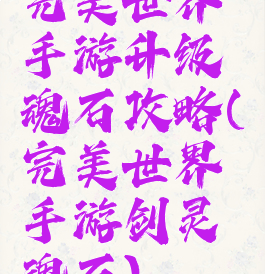 完美世界
手游升级
魂石攻略(
完美世界
手游剑灵
魂石)